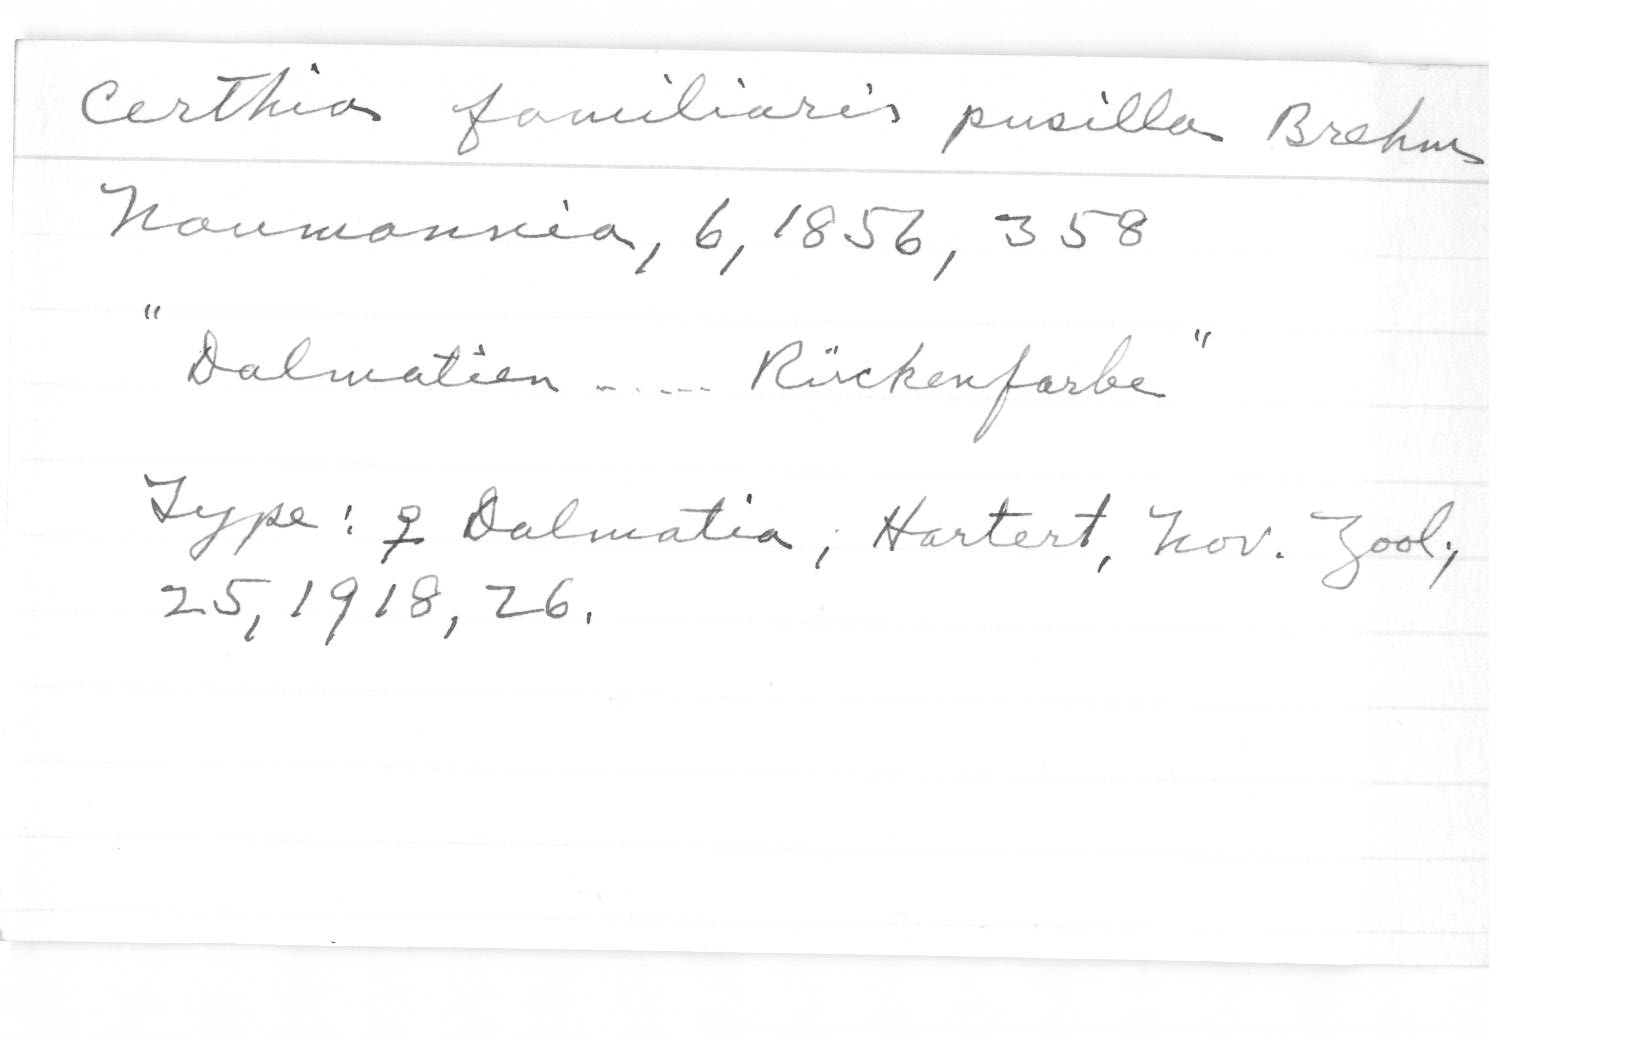 Certhia familiaris pusilla Brehm
Naumannia, 6, 1856, 358
"Dalmatien ..... Rückenfarbe"
Type: ♀ Dalmatia; Hartert, Nov. Zool.,
25, 1918, 26.